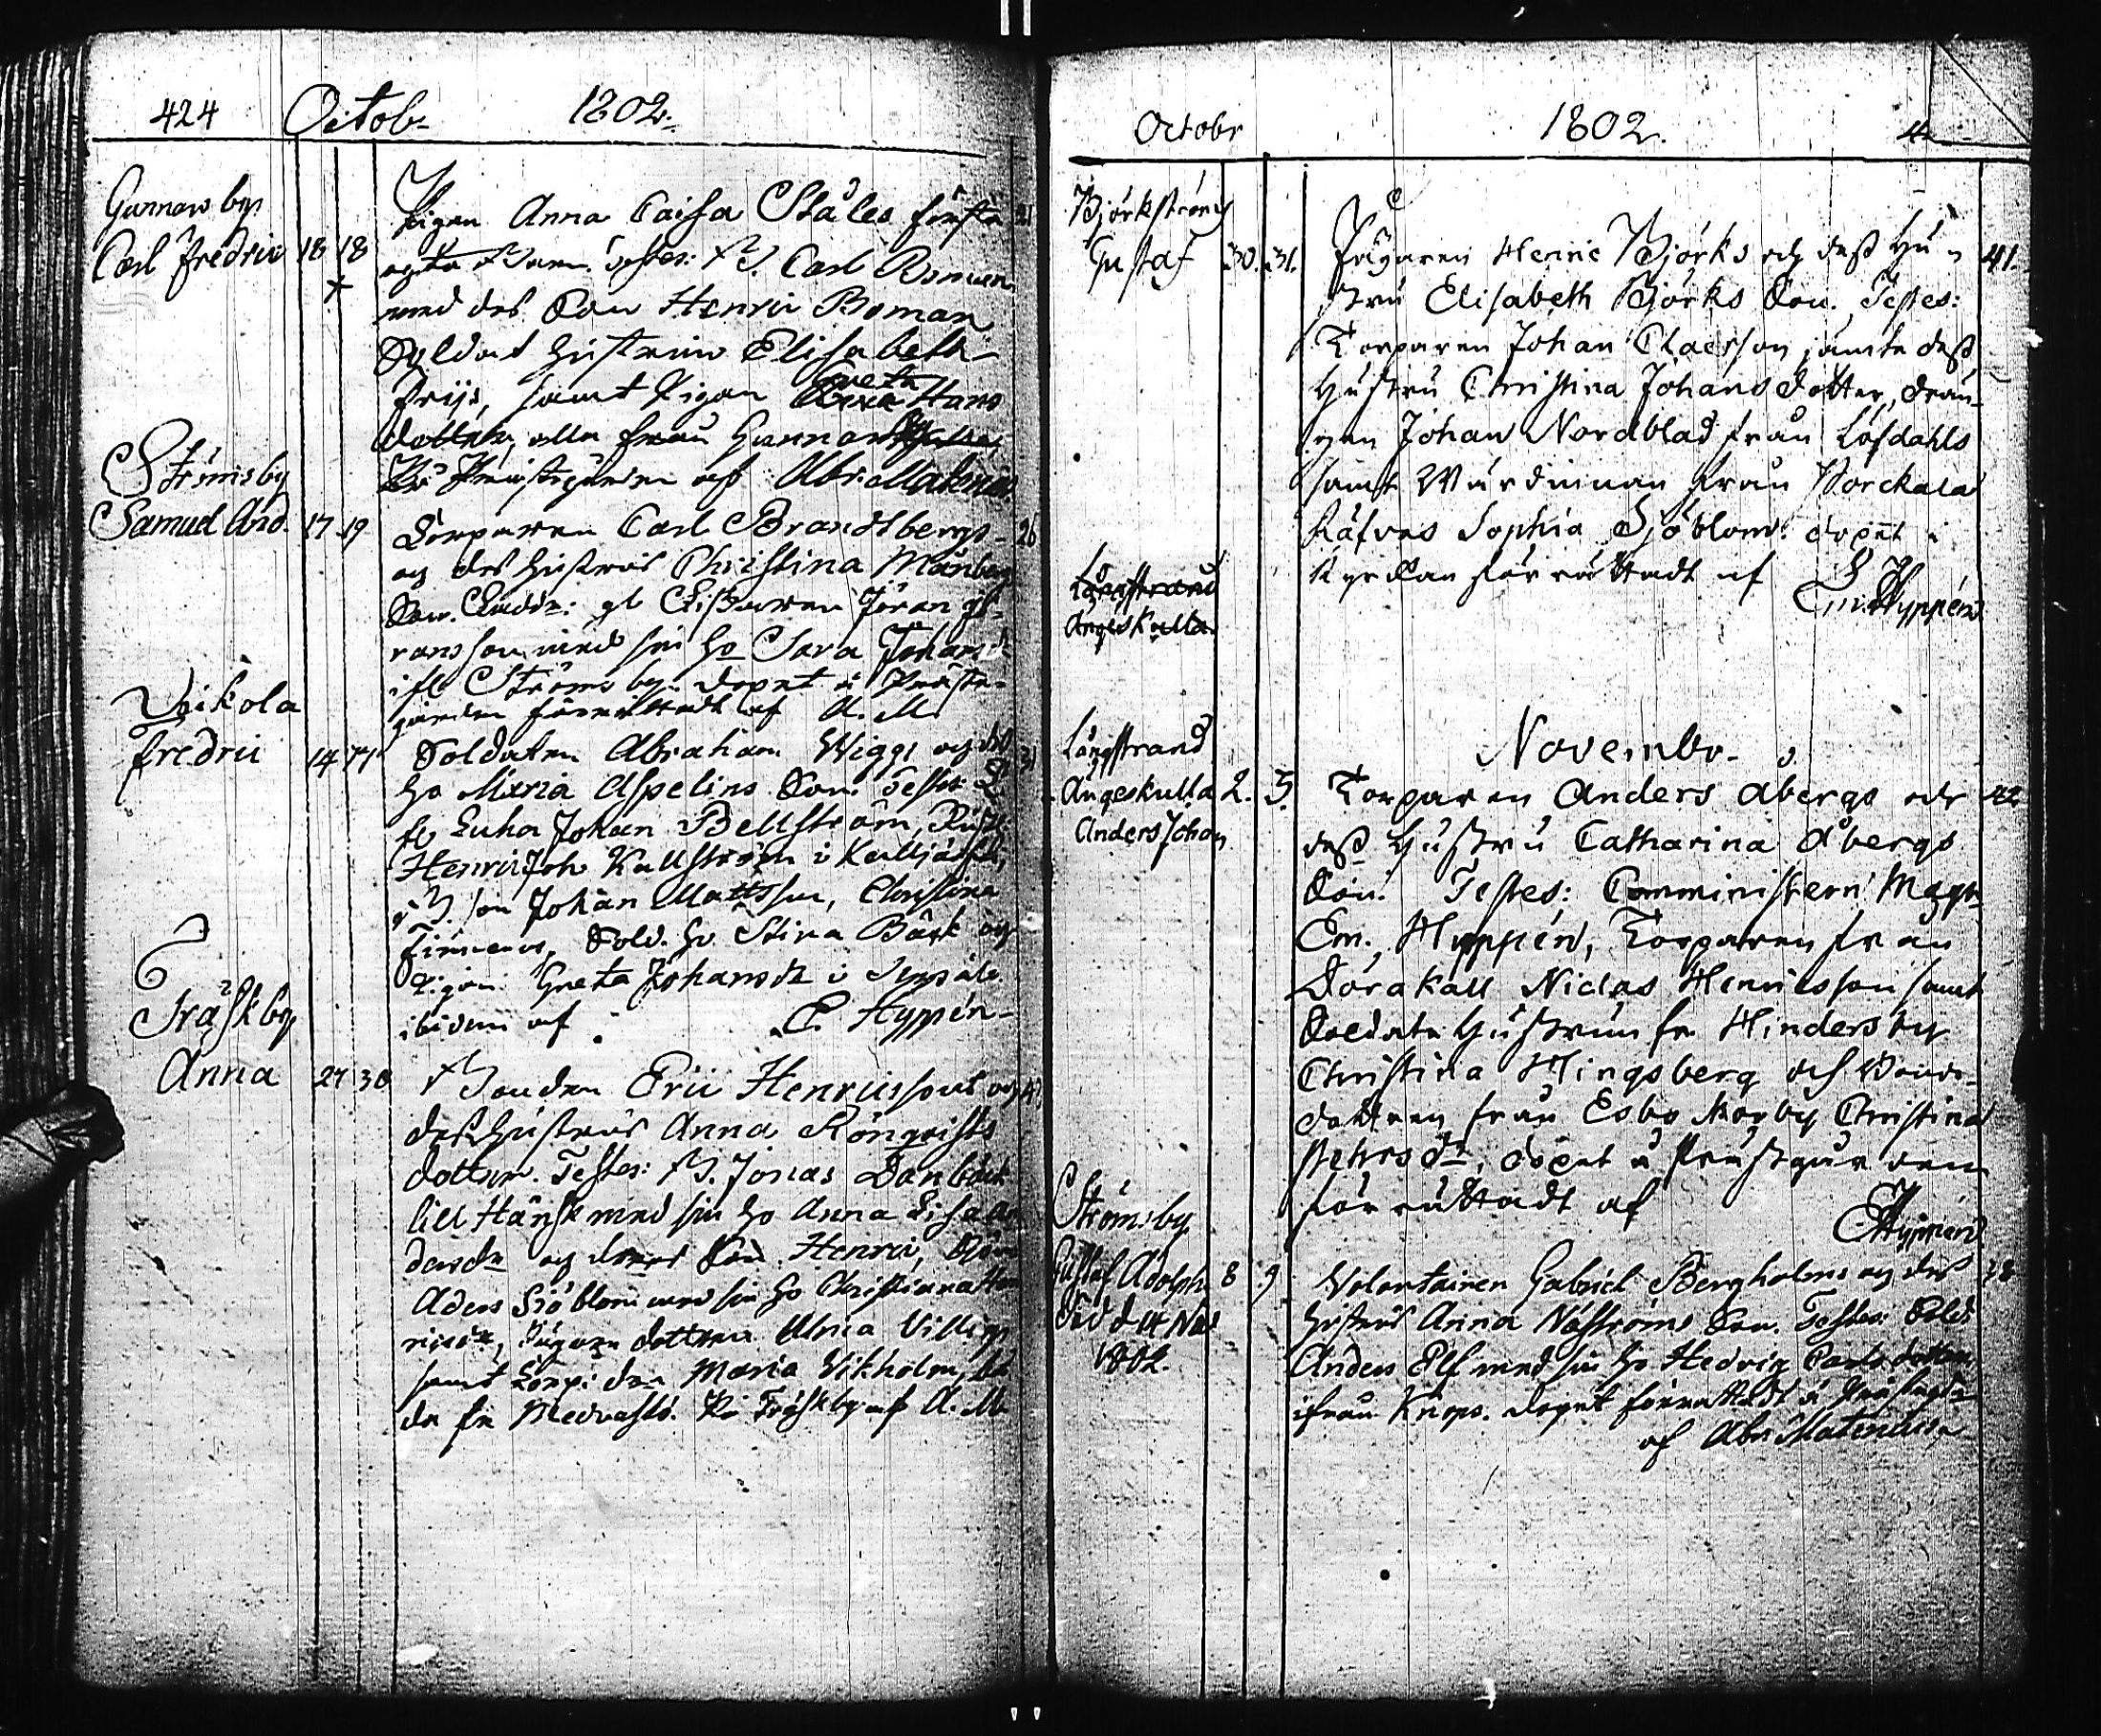 424 Octob. 1802.
Gunnars by
Carl Fredric 18 18
Pigan Anna Caisa Ståles första 21
oägta Barn. Testes: B. Carl Roman
med des Son Henric Boman
Soldat hustrun Elisabeth
Frijs, samt Pigan Greta Hans
dotter, alla från Gunnars
På Prästgården af Abr. Malenius
Strömsby
Samuel And. 17 19
Torparen Carl Brandtbergs 26
och des hustrus Christina Månberg
Son. Jöran Gö-
ransson med sin ho Sara Johansd.
ifr Strömsby. Döpt å Präste-
gården förrättadt af A. M.
Veikola
Fredric 14 17
Soldaten Abraham Wiggs och des 31
ho Maria Aspelins Son. Testes:
Johan Bellström,
Henric Joh Kullström i
B. son Johan Mattsson, Christina
Sold. ho Stina Bäck och
Pigan Greta Johansdr i
ibidem af E. Hyppén
Träskby
Anna 27 30
Bonden Eric Henricssons och
des hustrus Anna Rönqvists
dotter. Testes: B. Jonas Danbäck
lill Hänsk med sin ho Anna Lisa An
dersdr och deras Son Henric,
Aders Sjöblom med sin ho Christina Hen
ricsdr, dottren Ulrica Villigs
samt Maria Wikholm,
fr Medvastö. På Träskby af A. M.
Octobr 1802.
Björkströms
Gustaf 30. 31.
Jägaren Henric Björks och dess Hu- 41.
stru Elisabeth Björks Son. Testes:
Torparen Johan Claesson jämte dess
Hustru Christina Johansdotter, drän-
gen Johan Nordblad från Löfdahls
samt Wärdinnan från Porckala
Räfvas Sophia Sjöblom. döpet i
Kyrckan förrättadt af
Em. Hyppén
Långstrand
Ängeskulla
Novembr.
Långstrand
Ängeskulla 2. 3.
Anders Johan
Torparen Anders Åbergs och 42
dess Hustru Catharina Åbergs
Son. Testes: Comministern Magr
Em. Hyppén, Torparen från
Dorakall Niclas Henricsson samt
Soldats Hustrun fr Hindersby
Christina Hingsberg och Bonde-
dottren från Esbo Morby Christina
Pehrsdr, döpet å Prästgården
förrättadt af
E Hyppén
Strömsby
Gustaf Adolph 8 9
död d 14 Nov
1802.
Volontairen Gabriel Bergholms och des 28
hustrus Anna Näsströms Son. Testes: Sold:
Anders Elf med sin ho Hedvig Carls dotter
ifrån Knops. döpet förrättadt å Prästegån
af Abr Malenius